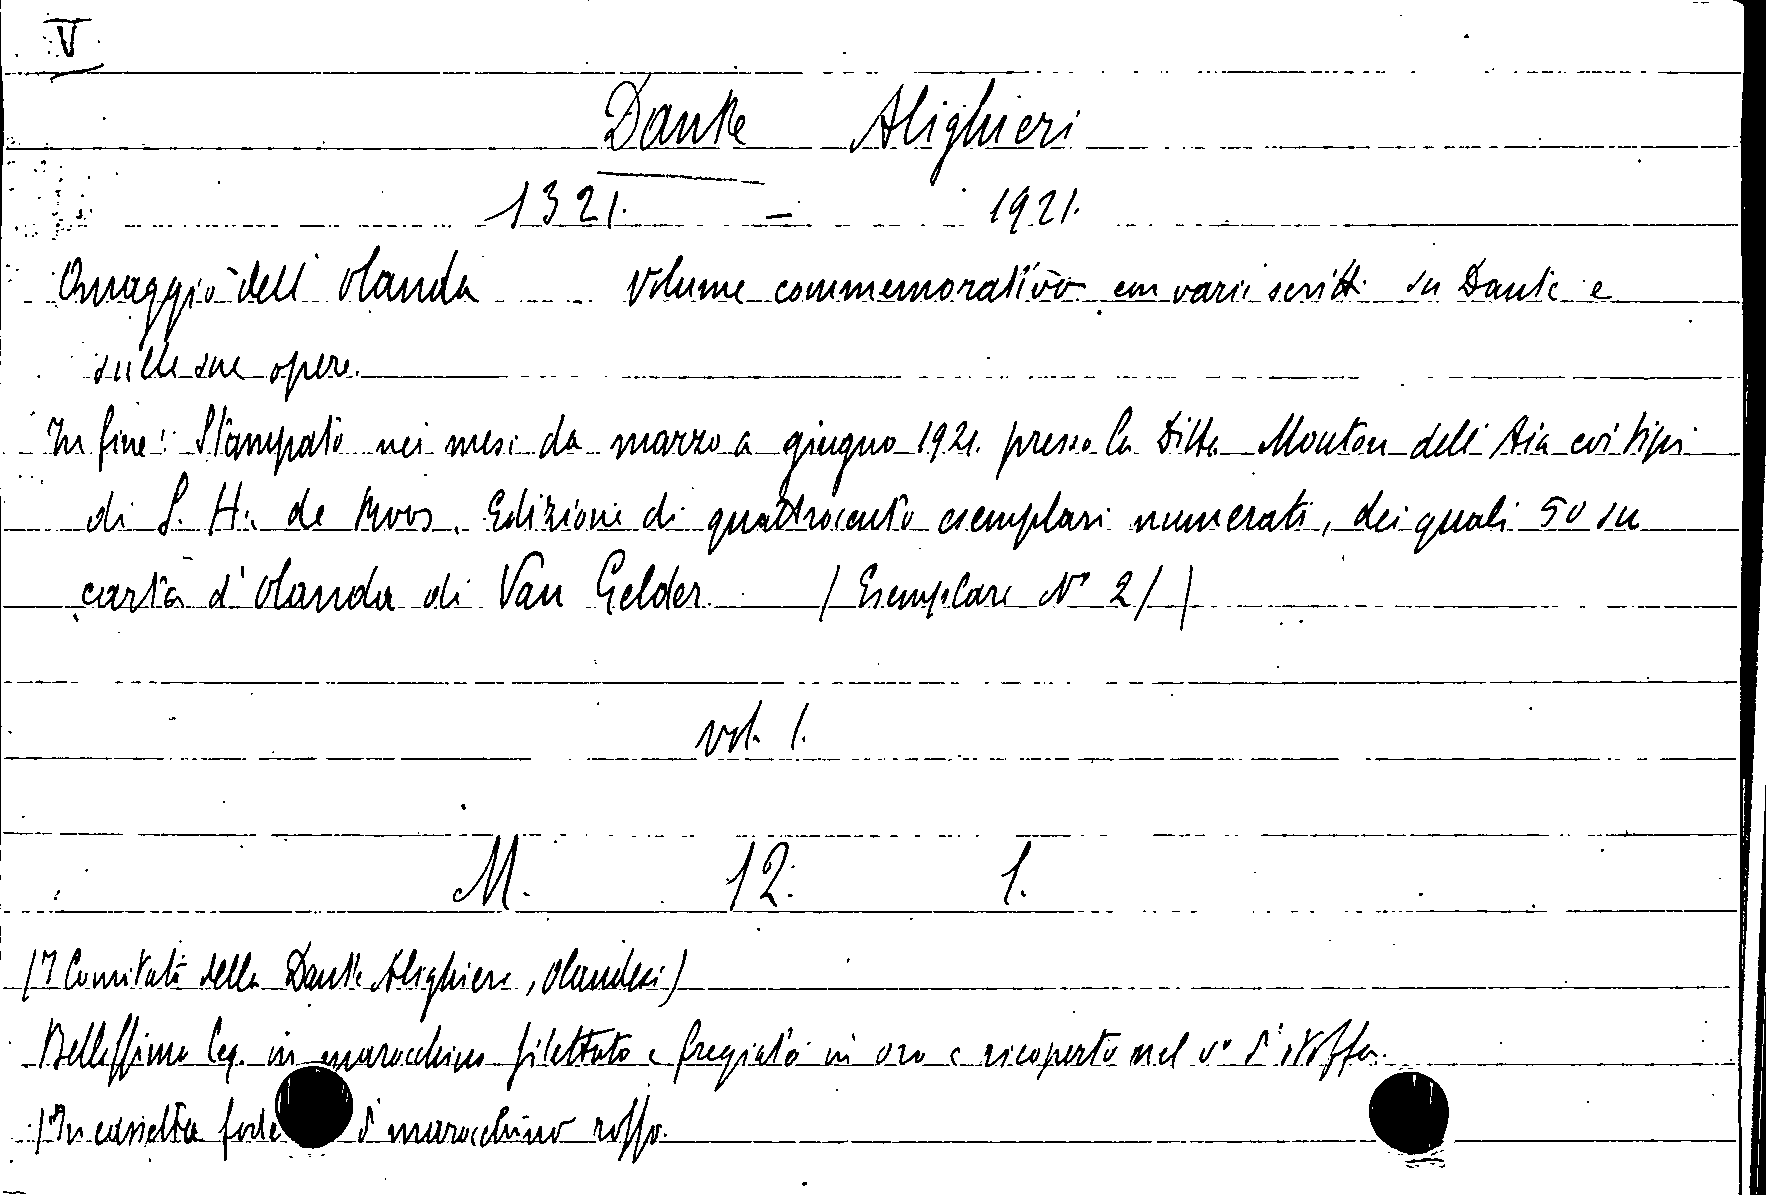 V
Dante Alighieri
1321. - 1921.
Omaggio dell'Olanda Volume commemorativo con varii scritti su Dante e
sulle sue opere.
In fine: Stampato nei mesi da marzo a giugno 1921. presso la Ditta Mouton dell'Aia coi tipi
di S. H. de Roos. Edizione di quattrocento esemplari numerati, dei quali 50 su
carta d'Olanda di Van Gelder. (Esemplare N° 21)
vol. 1.
M. 12. 1.
Comitato della Dante Alighieri, Olandesi)
Bellissima leg. in marocchino filettato e fregiato in oro e ricoperto nel v° d'stoffa.
(In cassetta fode d'marocchino rosso.